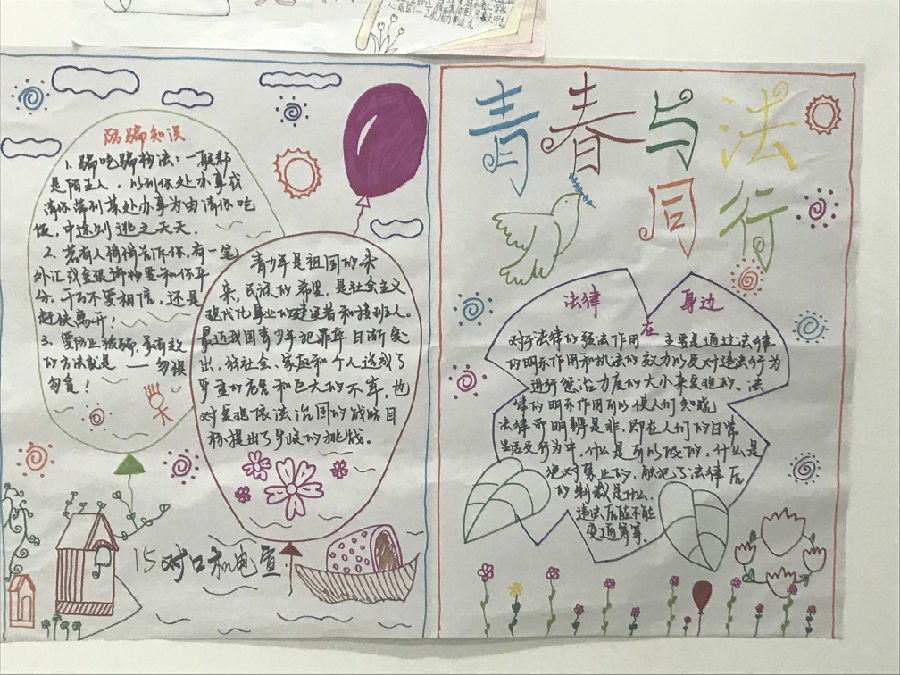 防骗知识
1. 骗吃骗物法：一般都
是陌生人，以到你处办事或
请你带到某处办事为由请你吃
饭，中途则逃之夭夭。
2. 若有人悄悄告诉你，有一笔
外汇或金银饰物要和你平
分，千万不要相信，还是
赶快离开！
3. 要防止被骗，最有效
的方法就是——勿贪
勿意！
青少年是祖国的未
来，民族的希望，是社会主义
现代化事业的建设者和接班人。
最近我国青少年犯罪率日渐突
出，给社会、家庭和个人造成了
严重的危害和巨大的不幸，也
对实现依法治国的战略目
标提出了严峻的挑战。
15对口机电宣
青春与法
同行
法律在身边
对于法律的强法作用 主要是通过法律
的明示作用和执法的效力以及对违法行为
进行惩治力度的大小来实现的。法
律的明示作用可以使人们知晓
法律而明辨是非，即在人们的日常
生活交行为中，什么是可以做的，什么是
绝对禁止的，触犯了法律后
的制裁是什么，
违法后能不能
变通等等。